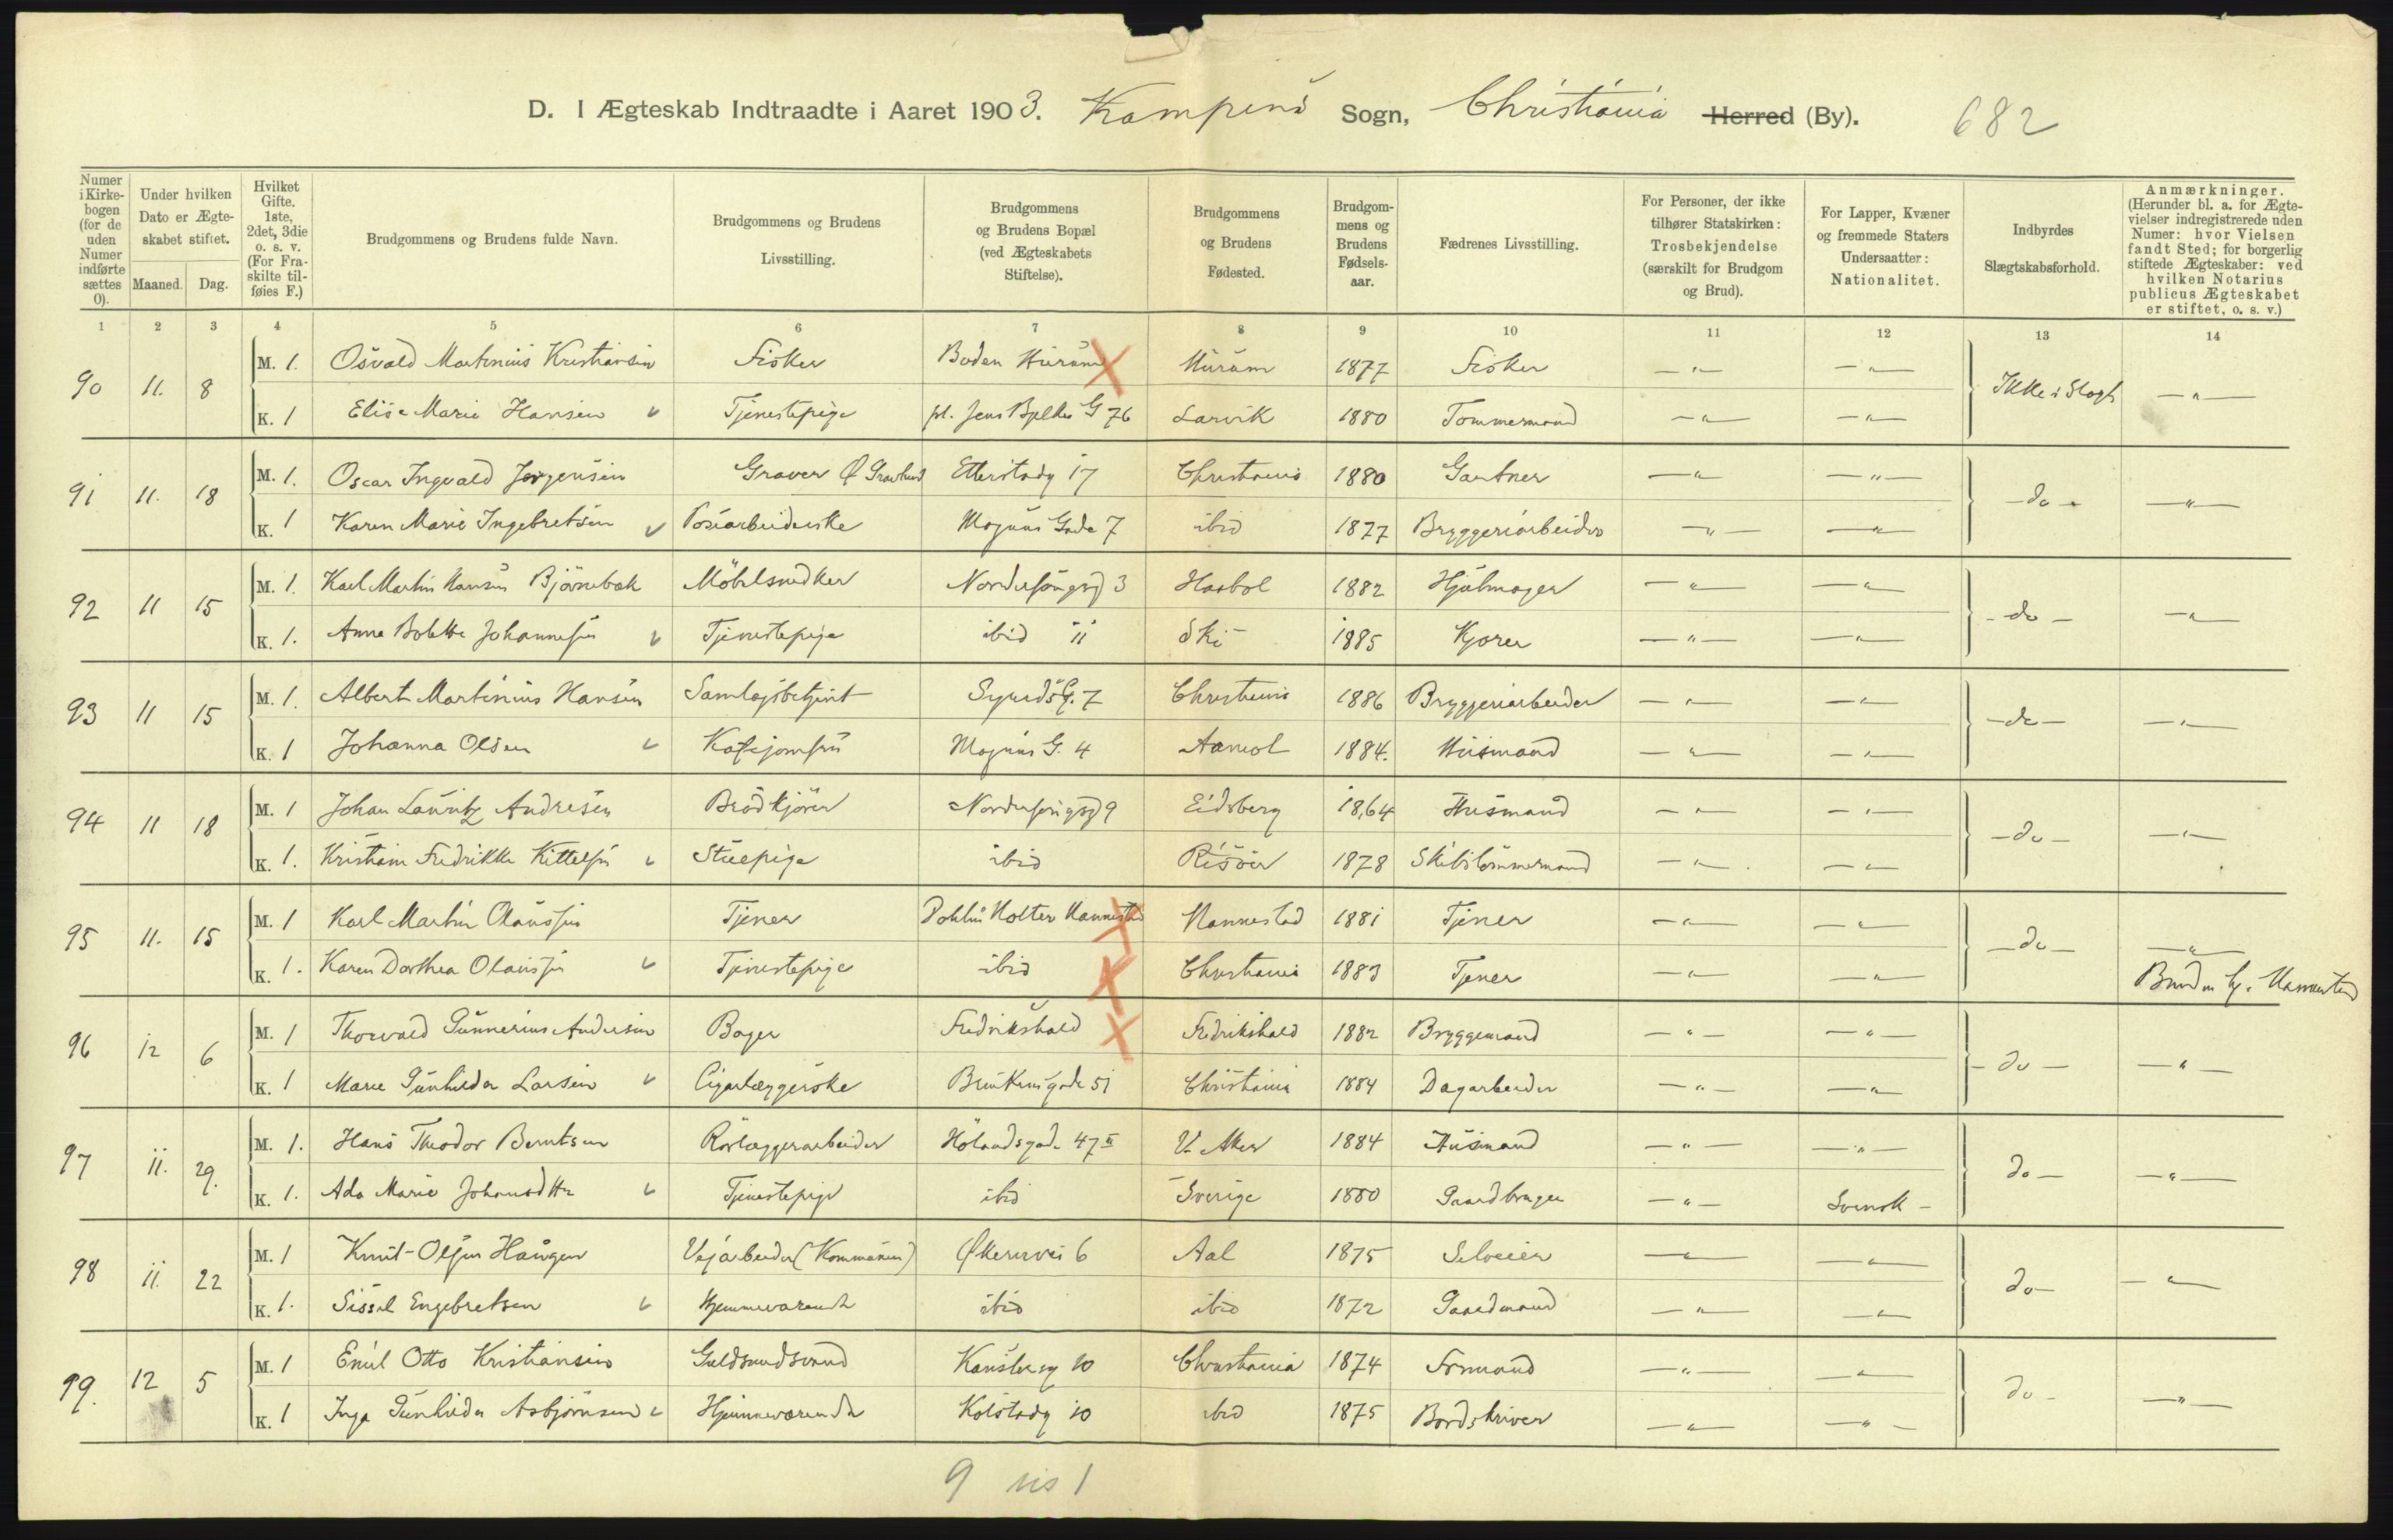 D. I Ægteskab Indtraadte i Aaret 1903. Kampens Sogn, Christiania Herred (By). 682
Numer i Kirkebogen (for de uden Numer indførte sættes 0).
Under hvilken Dato er Ægteskabet stiftet.
Maaned. Dag.
Hvilket Gifte. 1ste, 2det, 3die o. s. v. (For Fraskilte tilføies F.)
Brudgommens og Brudens fulde Navn.
Brudgommens og Brudens Livsstilling.
Brudgommens og Brudens Bopæl (ved Ægteskabets Stiftelse).
Brudgommens og Brudens Fødested.
Brudgommens og Brudens Fødselsaar.
Fædrenes Livsstilling.
For Personer, der ikke tilhører Statskirken: Trosbekjendelse (særskilt for Brudgom og Brud).
For Lapper, Kvæner og fremmede Staters Undersaatter: Nationalitet.
Indbyrdes Slægtskabsforhold.
Anmærkninger. (Herunder bl. a. for Ægtevielser indregistrerede uden Numer: hvor Vielsen fandt Sted; for borgerlig stiftede Ægteskaber: ved hvilken Notarius publicus Ægteskabet er stiftet, o. s. v.)
1 2 3 4 5 6 7 8 9 10 11 12 13 14
90 11. 8 M. 1. Osvald Martinius Kristiansen Fisker Hurum Hurum 1877 Fisker — " — — " — Ikke i Slægt — " —
K. 1 Elise Marie Hansen Tjenestepige Jens Bjelkes G 76 Larvik 1880 Tømmermand — " — — " —
91 11. 18 M. 1. Oscar Ingvald Jørgensen Graver Etterstadg 17 Christiania 1880 Gartner — " — — " — - do - — " —
K. 1 Karen Marie Ingebretsen Posearbeiderske Magnus Gade 7 ibid 1877 Bryggeriarbeider — " — — " —
92 11 15 M. 1. Karl Martin Hansen Bjørnebæk Møbelsnedker 3 Haabøl 1882 Hjulmager — " — — " — - do - — " —
K. 1. Anna Bolette Johannesen Tjenestepige ibid 11 Ski 1885 Kjører — " — — " —
93 11 15 M. 1. Albert Martinius Hansen Samlagsbetjent Sigurds G. 7 Christiania 1886 Bryggeriarbeider — " — — " — - do - — " —
K. 1 Johanna Olsen Kafejomfru Magnus G. 4 Aamot 1884. Husmand — " — — " —
94 11 18 M. 1 Johan Lauritz Andresen Brødkjører 9 Eidsberg 1864 Husmand — " — — " — - do - — " —
K. 1. Kristiane Fredrikke Kittelsen Stuepige ibid Risøer 1878 Skibstømmermand — " — — " —
95 11. 15 M. 1 Karl Martin Olaussen Tjener Holter Nannestad Nannestad 1881 Tjener — " — — " — - do - — " —
K. 1. Karen Dorthea Olaussen Tjenestepige ibid Christiania 1883 Tjener — " — — " — Nannestad
96 12 6 M. 1 Thorvald Gunnerius Andersen Bager Fredrikshald Fredrikshald 1882 Bryggemand — " — — " — - do - — " —
K. 1 Marie Gunhilda Larsen Cigarlæggerske Brinkens gade 51 Christiania 1884 Dagarbeider — " — — " —
97 11. 29. M. 1. Hans Theodor Berntsen Rørlæggerarbeider Hølandsgade 47 II V. Aker 1884 Husmand — " — — " — do - — " —
K. 1. Ada Marie Johansdtter Tjenestepige ibid Sverige 1880 Gaardbruger — " — Svensk -
98 11. 22 M. 1 Knut Olsen Haugen Vejarbeider (Kommunen) Økernvei 6 Aal 1875 Selveier — " — — " — do - — " —
K. 1. Sissel Engebretsen Hjemmeværende ibid ibid 1872 Gaardmand — " — — " —
99. 12 5 M. 1 Emil Otto Kristiansen Guldsmedsvend 10 Christiania 1874 Formand — " — — " — do - — " —
K. 1 Inga Gunhilda Asbjørnsen Hjemmeværende Kolstadg 10 ibid 1875 Bordskriver — " — — " —
9 1